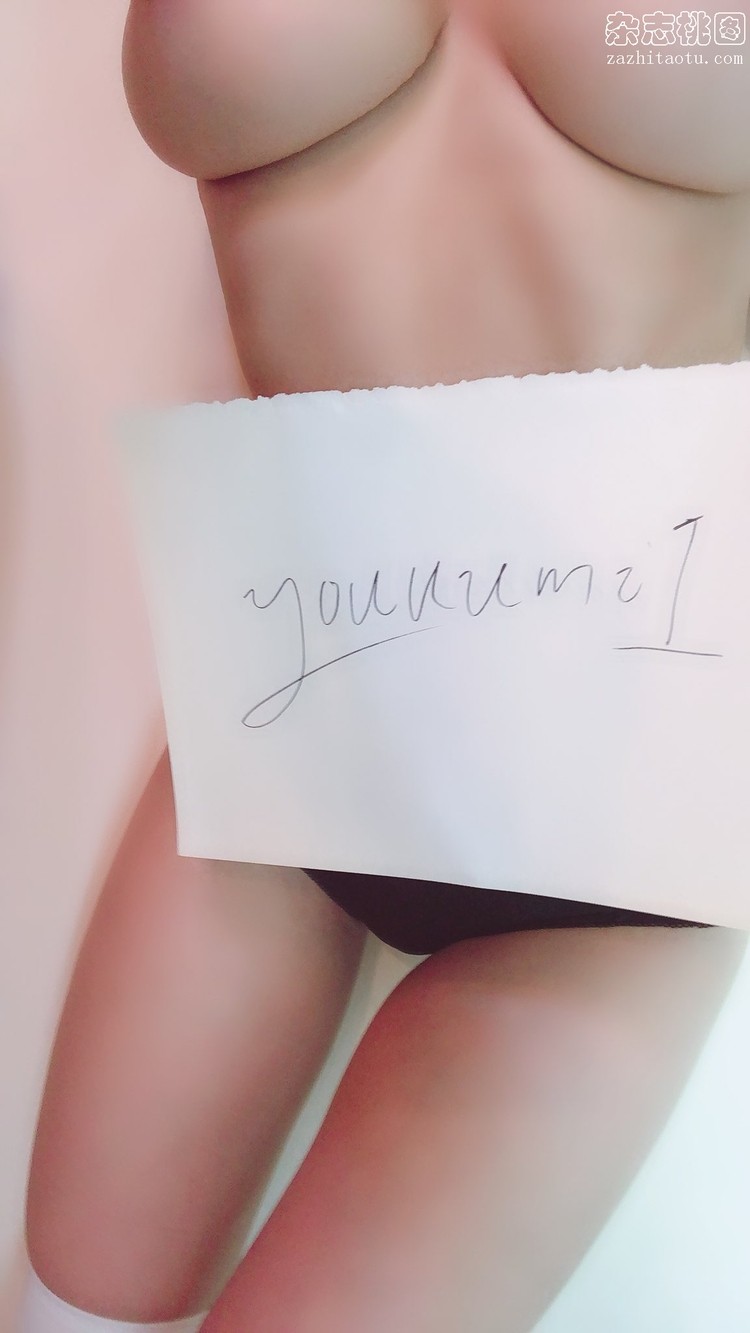 杂志桃图
zazhitaotu.com
youkumi1